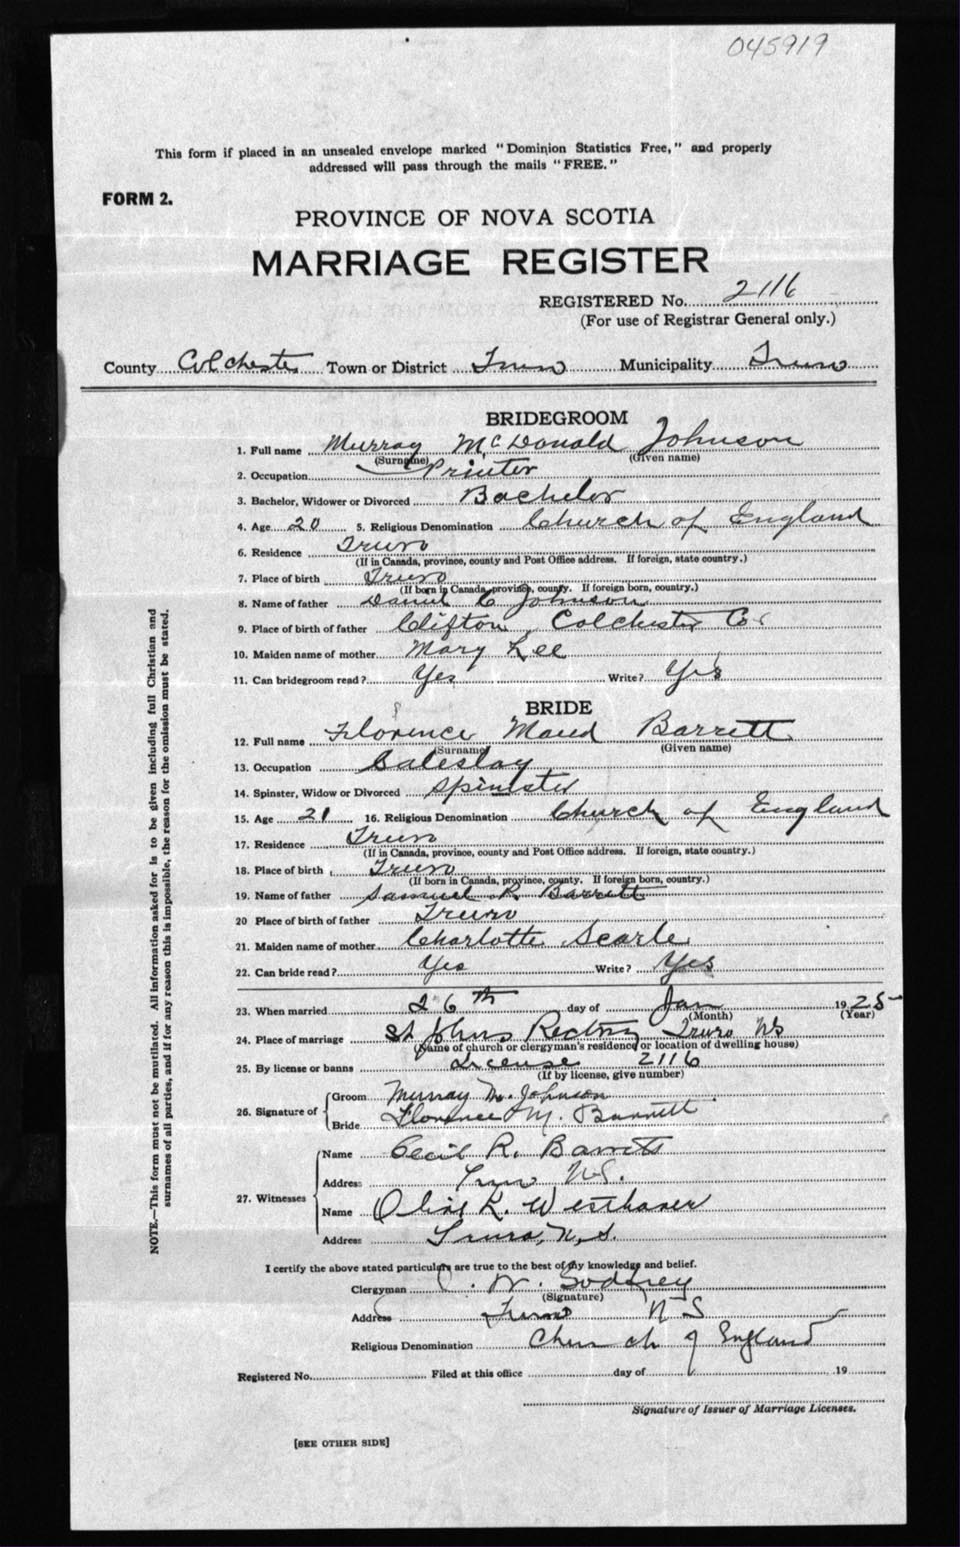 045919
This form if placed in an unsealed envelope marked "Dominion Statistics Free," and properly
addressed will pass through the mails "FREE."
FORM 2.
PROVINCE OF NOVA SCOTIA
MARRIAGE REGISTER
REGISTERED No. 2116
(For use of Registrar General only.)
County Colchester Town or District Truro Municipality Truro
BRIDEGROOM
1. Full name Murray McDonald Johnson
(Surname) (Given name)
2. Occupation Printer
3. Bachelor, Widower or Divorced Bachelor
4. Age 20 5. Religious Denomination Church of England
6. Residence Truro
(If in Canada, province, county and Post Office address. If foreign, state country.)
7. Place of birth Truro
(If born in Canada, province, county. If foreign born, country.)
8. Name of father Daniel C Johnson
9. Place of birth of father Clifton, Colchester Co
10. Maiden name of mother Mary Lee
11. Can bridegroom read? Yes Write? Yes
BRIDE
12. Full name Florence Maud Barrett
(Surname) (Given name)
13. Occupation Saleslay
14. Spinster, Widow or Divorced Spinister
15. Age 21 16. Religious Denomination Church of England
17. Residence Truro
(If in Canada, province, county and Post Office address. If foreign, state country.)
18. Place of birth Truro
(If born in Canada, province, county. If foreign born, country.)
19. Name of father Samuel R. Barrett
20 Place of birth of father Truro
21. Maiden name of mother Charlotte Searle
22. Can bride read? Yes Write? Yes
23. When married 26th day of Jan 1925
(Month) (Year)
24. Place of marriage St Johns Rectory Truro NS
(Name of church or clergyman's residence or location of dwelling house)
25. By license or banns License 2116
(If by license, give number)
26. Signature of
Groom Murray M. Johnson
Bride Florence M. Barrett
27. Witnesses
Name Cecil R. Barrett
Address Truro N.S.
Name K. Westhaver
Address Truro, N.S.
I certify the above stated particulars are true to the best of my knowledge and belief.
Clergyman W. Godfrey
(Signature)
Address Truro N S
Religious Denomination Church of England
Registered No. Filed at this office day of 19
Signature of Issuer of Marriage Licenses.
[SEE OTHER SIDE]
NOTE.—This form must not be mutilated. All information asked for is to be given including full Christian and
surnames of all parties, and if for any reason this is impossible, the reason for the omission must be stated.